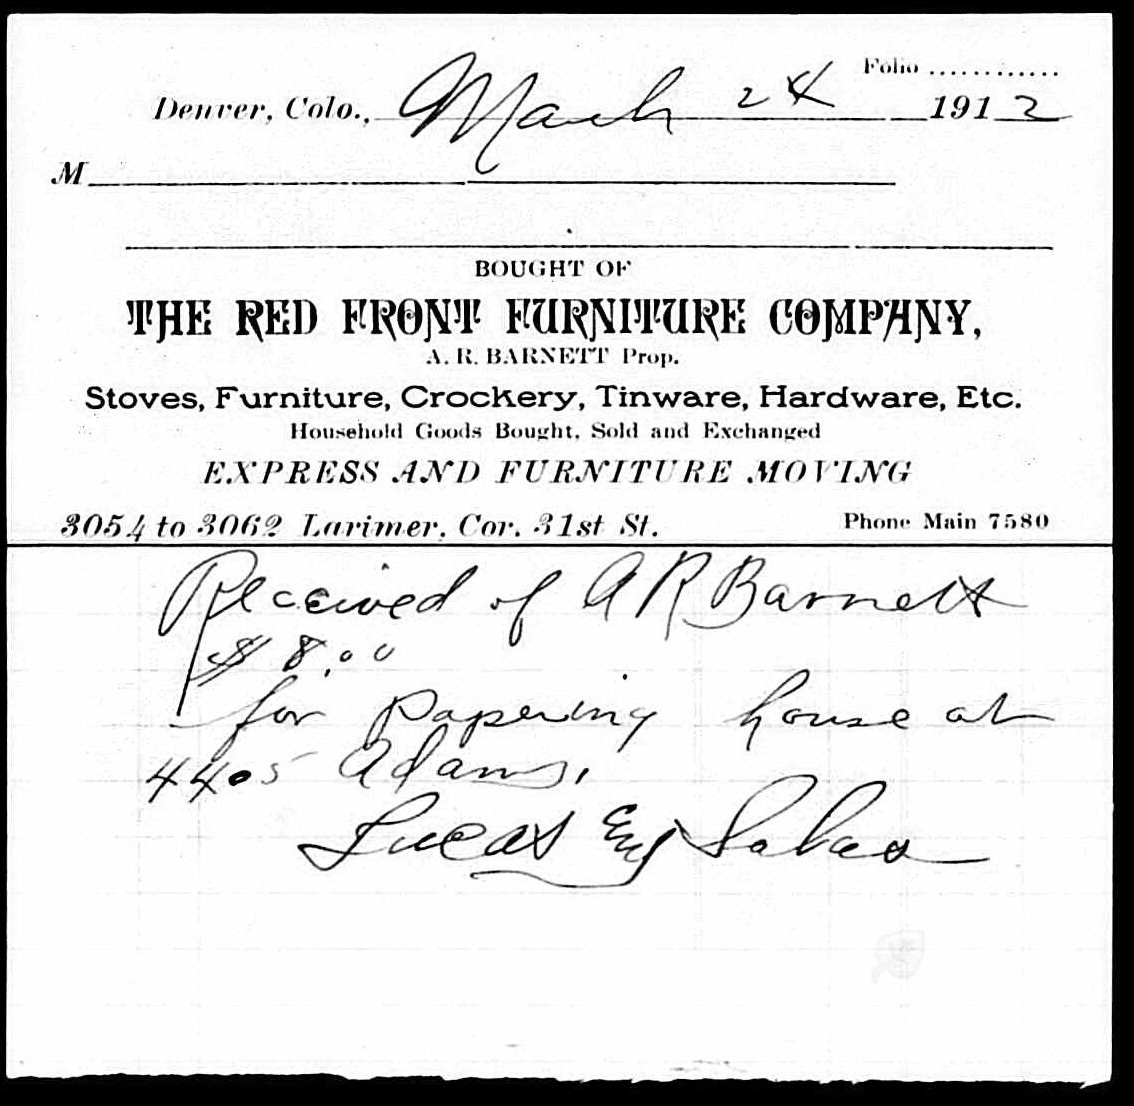 Folio ............
Denver, Colo., March 24 1912
M
BOUGHT OF
THE RED FRONT FURNITURE COMPANY,
A. R. BARNETT Prop.
Stoves, Furniture, Crockery, Tinware, Hardware, Etc.
Household Goods Bought, Sold and Exchanged
EXPRESS AND FURNITURE MOVING
3054 to 3062 Larimer, Cor. 31st St. Phone Main 7580
Received of A R Barnett
$8.00
for papering house at
4405 Adams.
Lucas